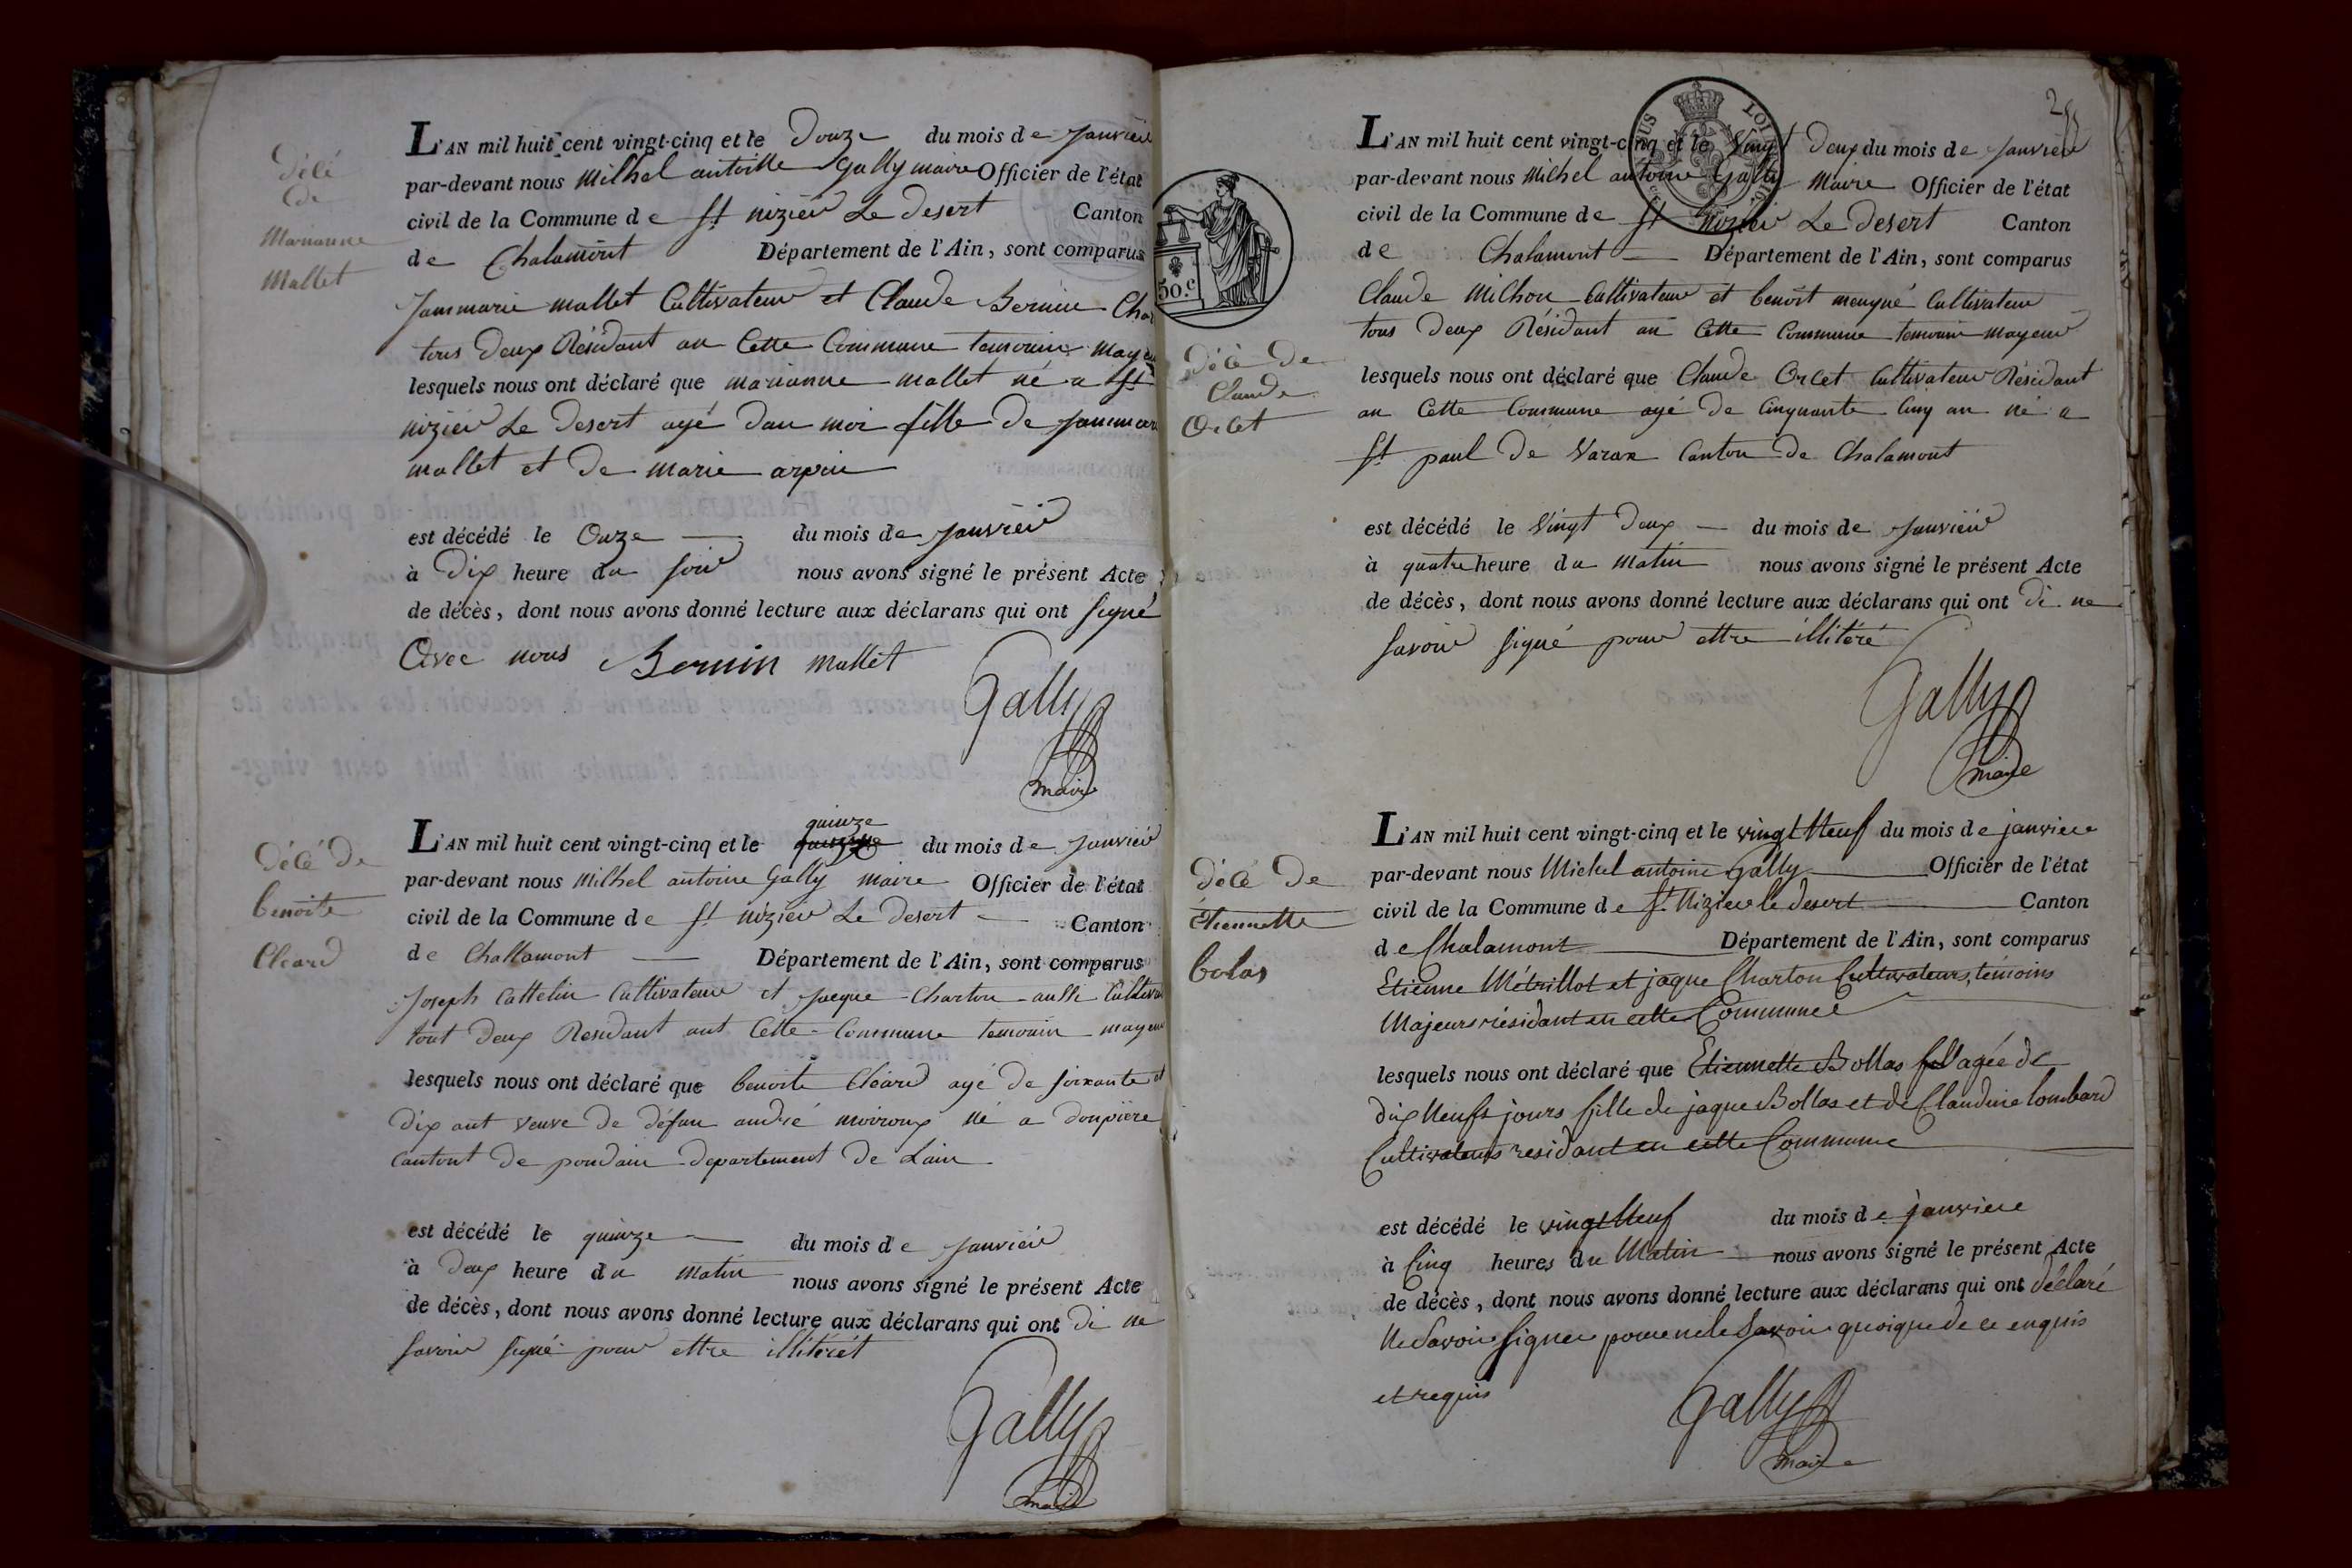 Décé
de
Marianne
Mallet
L'AN mil huit cent vingt-cinq et le Douze du mois de Janvier
par-devant nous Milhel antoine Gally maire Officier de l'état
civil de la Commune de St nizier Le Desert Canton
de Chalamont Département de l'Ain, sont comparus
Janmarie mallet Cultivateur et Claude Bernin
tous Deux Résidant an Cette Commune temouin
lesquels nous ont déclaré que marianne mallet né a St
nizier Le Desert agé dau moi fille de
mallet et de marie arpin
est décédé le Onze du mois de Janvier
à Dix heure du soir nous avons signé le présent Acte
de décès, dont nous avons donné lecture aux déclarans qui ont signé
Avec nous Bernin mallet
Gally
maire
Décé De
benoite
Cléard
L'AN mil huit cent vingt-cinq et le quinze du mois de Janvier
par-devant nous Milhel antoine Gally maire Officier de l'état
civil de la Commune de St nizier Le Desert Canton
de Challamont Département de l'Ain, sont comparus
Joseph Cattelin Cultivateur et Jacque Charton aussi
tout Deux Residant ant Cette Commune temouin
lesquels nous ont déclaré que benoite Cléard agé de soixante et
Dix ant veuve de défun andré moiroux né a donpiere
Cantont de pondain departement de Lain
est décédé le quinze du mois de Janvier
à Deux heure du matin nous avons signé le présent Acte
de décès, dont nous avons donné lecture aux déclarans qui ont di ne
savoir signé pour ettre illitérét
Gally
maire
50.c
L'AN mil huit cent vingt-cinq et le Vingt Deux du mois de Janvier
par-devant nous Milhel antoine Gally Maire Officier de l'état
civil de la Commune de St Nizier Le Desert Canton
de Chalamont Département de l'Ain, sont comparus
Claude Milhon Cultivateur et benoit Cultivateur
tous Deux Résidant an Cette Commune temouin mayeur
Décé De
Claude
Orcet
lesquels nous ont déclaré que Claude Orcet Cultivateur Résidant
an Cette Commune agé de Cinquante Cinq an né a
St paul De Varax Canton de Chalamont
est décédé le Vingt Deux du mois de Janvier
à quatre heure du Matin nous avons signé le présent Acte
de décès, dont nous avons donné lecture aux déclarans qui ont di ne
savoir signé pour ettre illitéré
Gally
maire
Décé De
Etiennette
bolas
L'AN mil huit cent vingt-cinq et le vingt Neuf du mois de janviere
par-devant nous Michel antoine Gally Officier de l'état
civil de la Commune de St Nizier le desert Canton
de Chalamont Département de l'Ain, sont comparus
Etienne Métrillot et jaque Charton Cultivateurs, témoins
Majeurs résidant en cette Commune
lesquels nous ont déclaré que Etiennette Bollas agée de
dix Neufs jours fille de jaque Bollas et de Claudine lombard
Cultivateurs residant en cette Commune
est décédé le vingt Neuf du mois de janviere
à Cinq heures du Matin nous avons signé le présent Acte
de décès, dont nous avons donné lecture aux déclarans qui ont déclaré
Ne Savoir Signer pour ne le Savoir quoique de ce enquis
et requis
Gally
maire